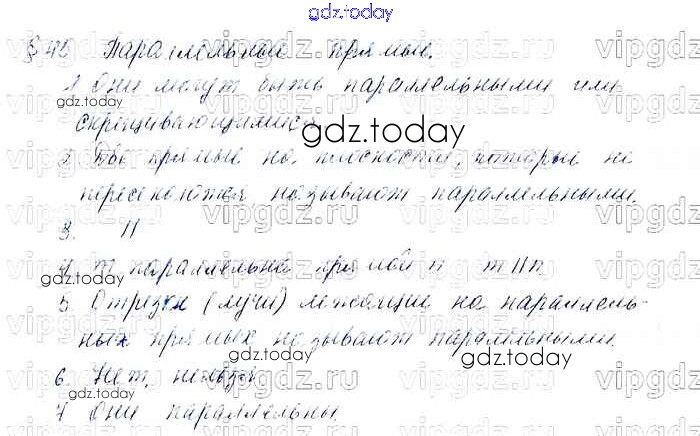 gdz.today
§ 45 Параллельные прямые.
1. Они могут быть параллельными или
gdz.today
скрещивающимися
gdz.today
2. Две прямые на плоскости, которые не
пересекаются, называют параллельными.
3. ||
4. m параллельна прямой n m || n
gdz.today
5. Отрезки (лучи) лежащие на параллель-
ных прямых называют параллельными.
gdz.today gdz.today
6. Нет, нельзя
7 Они параллельны.
gdz.today
vipgdz.ru